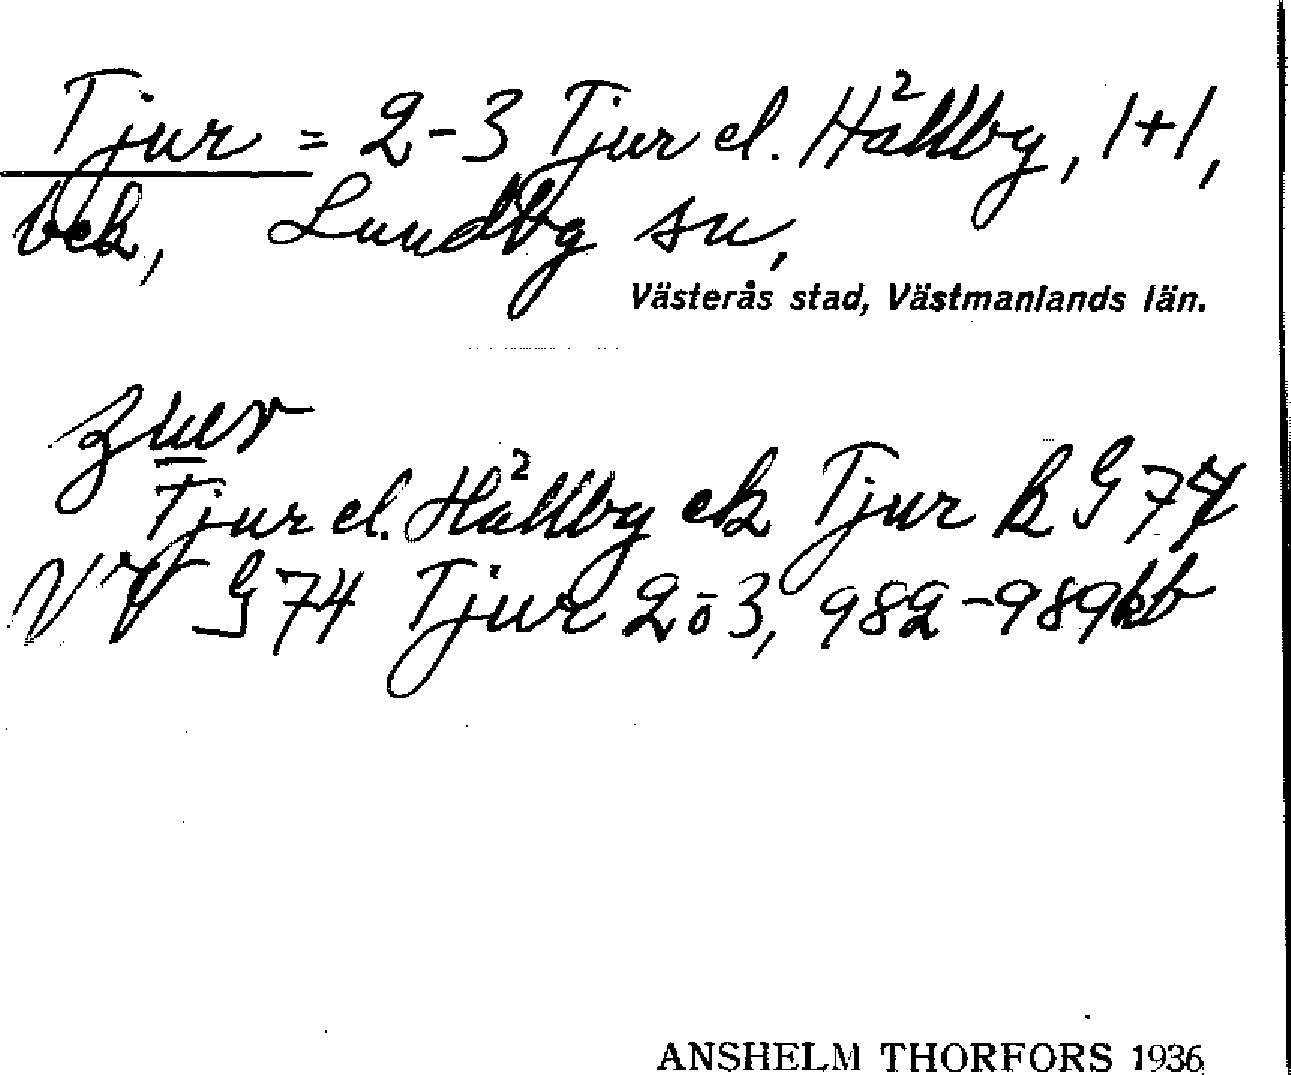 Tjur = 2-3 Tjur el. Hällby, 1+1,
bek, Lundby sn,
Västerås stad, Västmanlands län.
Tjur el. Hällby ek Tjur k G 74
G 74 Tjur 2 o 3, 982-989 kb
ANSHELM THORFORS 1936